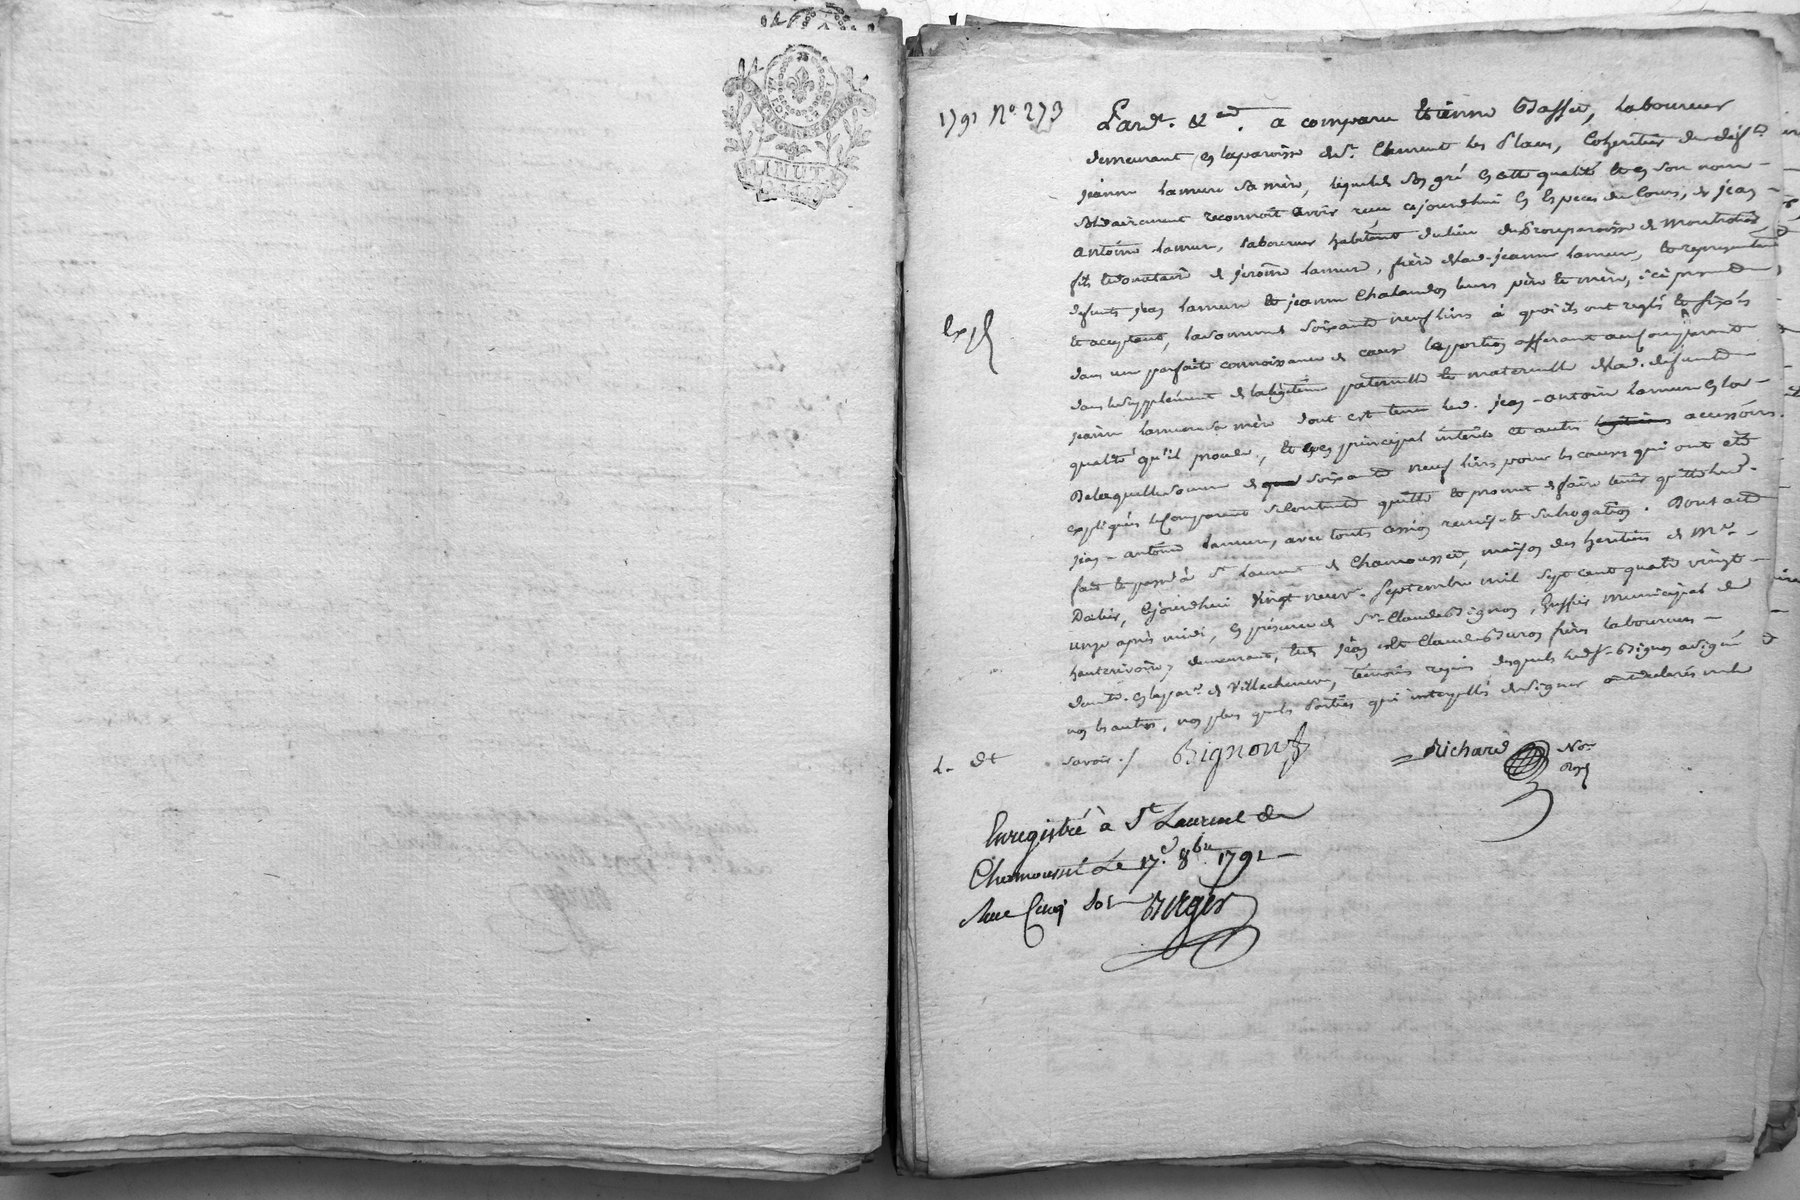 MINUTE
1791 N.° 273
Pard.t &a. a comparu Etienne Basset, laboureur
demeurant en la paroisse de St. Clement les Places, Coheritier de def.te
jeanne Lameure sa mère, lequel de son gré en cette qualité et en son nom
solidairement reconnoit avoir reçu cejourdhui en Especes de Cours, de jean
antoine Lamure, laboureur habitant du lieu du paroisse de Montrottier
fils et donataire de jérome Lamure, frère de lad. jeanne Lamure, et representant
defunts jean Lamure et jeanne Chalandon leurs père et mère, ici present
et acceptant, la somme de soixante neuf livres à quoi ils ont reglé et fixés
dans une parfaite connoissance de cause la portion afferant au comparant
dans le supplément de la légitime paternelle et maternelle de lad. defunte
jeanne Lamure sa mère dont est tenu led. jean-antoine Lamure en la
qualité qu'il procede, et ce en principal intérêts et autres accessoires.
De laquelle somme de soixante neuf livres pour les causes qui ont été
expliquées le Comparant se contente quitte et promet de faire tenir quitte led.
jean-antoine Lamure, avec toute cession remise et subrogation. Dont acte
fait et passé à St. Laurent de Chamousset, maison des heritiers de Mr.
Dalier, Cejourdhui vingt neuf Septembre mil sept cent quatre vingt
unze après midi, en présence de Sr. Claude Bignon, officier municipal de
hauterivoire, demeurant, et de jean et Claude Buron frères laboureurs
demt. en la par.e de Villechenève, témoins requis desquels led. Sr. Bignon a signé
non les autres, non plus que les parties qui interpellés de signer ont declarés ne le
savoir ./.
Bignon
Richard
No.re
Roy.l
Enregistré à St Laurent de
Chamousset Le 17.e 8bre 1791
Reçu Cinq sols Berger